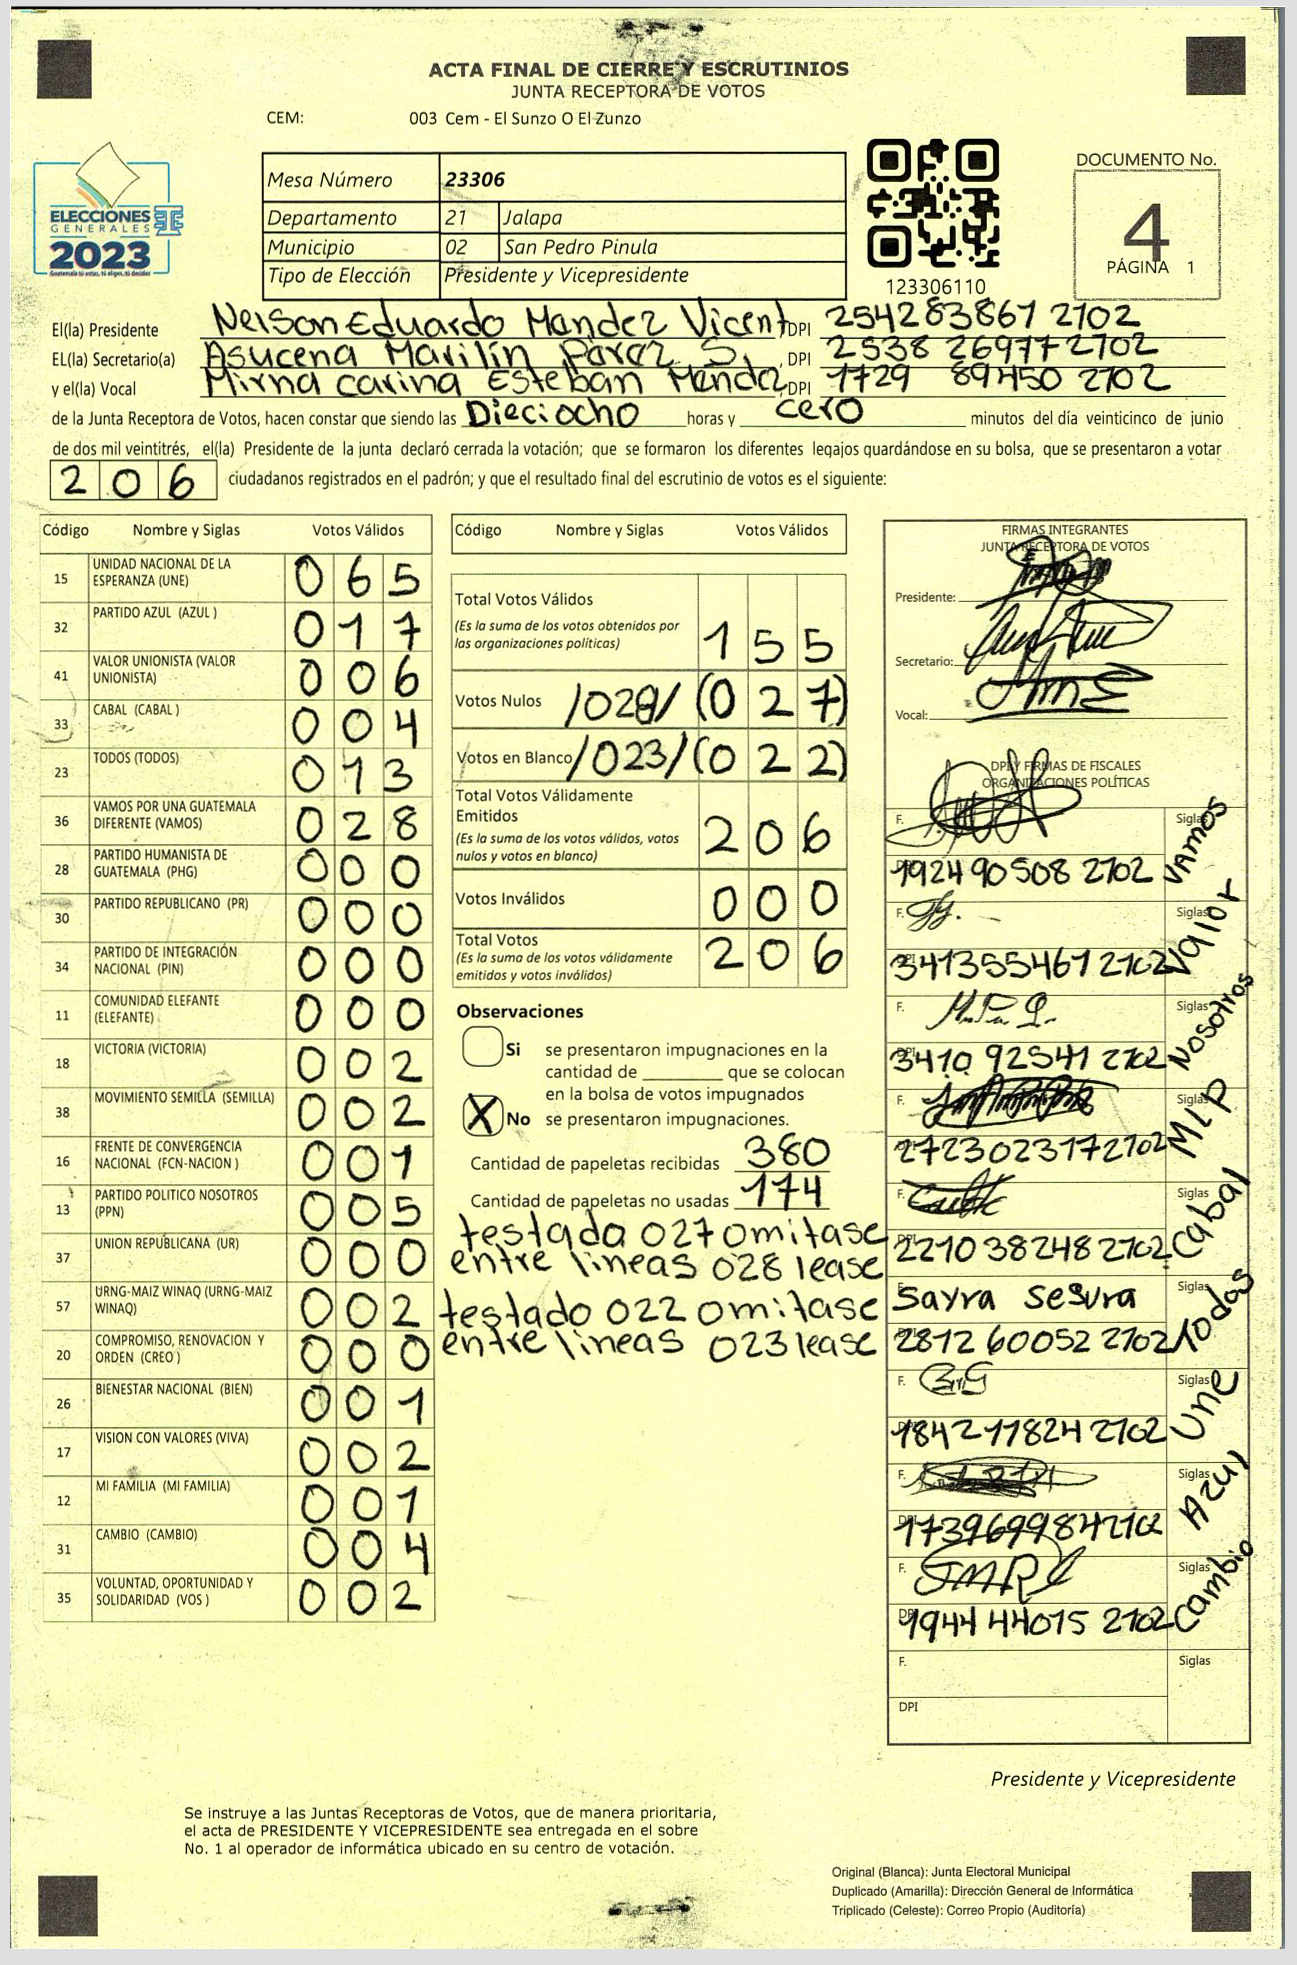 ACTA FINAL DE CIERRE Y ESCRUTINIOS
JUNTA RECEPTORA DE VOTOS
CEM: 003 Cem - El Sunzo O El Zunzo
ELECCIONES
GENERALES
2023
Mesa Número 23306
Departamento 21 Jalapa
Municipio 02 San Pedro Pinula
Tipo de Elección Presidente y Vicepresidente
123306110
DOCUMENTO No.
4
PÁGINA 1
El(la) Presidente Nelson Eduardo Mandez Vicent DPI 254283861 2102
EL(la) Secretario(a) Asucena Marilín Parez S. , DPI 2538 26977 2102
y el(la) Vocal Mirna carina Esteban Mendez DPI 1729 89450 2102
de la Junta Receptora de Votos, hacen constar que siendo las Dieciocho horas y cero minutos del día veinticinco de junio
de dos mil veintitrés, el(la) Presidente de la junta declaró cerrada la votación; que se formaron los diferentes legajos guardándose en su bolsa, que se presentaron a votar
206 ciudadanos registrados en el padrón; y que el resultado final del escrutinio de votos es el siguiente:
Código Nombre y Siglas Votos Válidos
15 UNIDAD NACIONAL DE LA ESPERANZA (UNE) 065
32 PARTIDO AZUL (AZUL ) 017
41 VALOR UNIONISTA (VALOR UNIONISTA) 006
33 CABAL (CABAL ) 004
23 TODOS (TODOS) 013
36 VAMOS POR UNA GUATEMALA DIFERENTE (VAMOS) 028
28 PARTIDO HUMANISTA DE GUATEMALA (PHG) 000
30 PARTIDO REPUBLICANO (PR) 000
34 PARTIDO DE INTEGRACIÓN NACIONAL (PIN) 000
11 COMUNIDAD ELEFANTE (ELEFANTE) 000
18 VICTORIA (VICTORIA) 002
38 MOVIMIENTO SEMILLA (SEMILLA) 002
16 FRENTE DE CONVERGENCIA NACIONAL (FCN-NACION ) 001
13 PARTIDO POLITICO NOSOTROS (PPN) 005
37 UNION REPUBLICANA (UR) 000
57 URNG-MAIZ WINAQ (URNG-MAIZ WINAQ) 002
20 COMPROMISO, RENOVACION Y ORDEN (CREO ) 000
26 BIENESTAR NACIONAL (BIEN) 001
17 VISION CON VALORES (VIVA) 002
12 MI FAMILIA (MI FAMILIA) 001
31 CAMBIO (CAMBIO) 004
35 VOLUNTAD, OPORTUNIDAD Y SOLIDARIDAD (VOS ) 002
Código Nombre y Siglas Votos Válidos
Total Votos Válidos 155
(Es la suma de los votos obtenidos por
las organizaciones políticas)
Votos Nulos /028/ (027)
Votos en Blanco /023/ (022)
Total Votos Válidamente
Emitidos 206
(Es la suma de los votos válidos, votos
nulos y votos en blanco)
Votos Inválidos 000
Total Votos 206
(Es la suma de los votos válidamente
emitidos y votos inválidos)
Observaciones
Si se presentaron impugnaciones en la
cantidad de ________ que se colocan
en la bolsa de votos impugnados
X No se presentaron impugnaciones.
Cantidad de papeletas recibidas 380
Cantidad de papeletas no usadas 174
testado 027 omitase
entre lineas 028 lease
testado 022 omitase
entre lineas 023 lease
FIRMAS INTEGRANTES
JUNTA RECEPTORA DE VOTOS
Presidente:
Secretario:
Vocal:
DPI Y FIRMAS DE FISCALES
ORGANIZACIONES POLÍTICAS
F. Siglas VAMOS
DPI 1924 90508 2102
F. Siglas Valor
DPI 341355461 2102
F. Siglas Nosotros
DPI 3410 92541 2102
F. Siglas MLP
DPI 2723023172102
F. Siglas Cabal
DPI 2210 38248 2102
F. Sayra Segura Siglas Todos
DPI 2812 60052 2102
F. Siglas Une
DPI 1842 11824 2102
F. Siglas Azul
DPI 1739699842102
F. Siglas Cambio
DPI 1944 44015 2102
F. Siglas
DPI
Presidente y Vicepresidente
Se instruye a las Juntas Receptoras de Votos, que de manera prioritaria,
el acta de PRESIDENTE Y VICEPRESIDENTE sea entregada en el sobre
No. 1 al operador de informática ubicado en su centro de votación.
Original (Blanca): Junta Electoral Municipal
Duplicado (Amarilla): Dirección General de Informática
Triplicado (Celeste): Correo Propio (Auditoría)